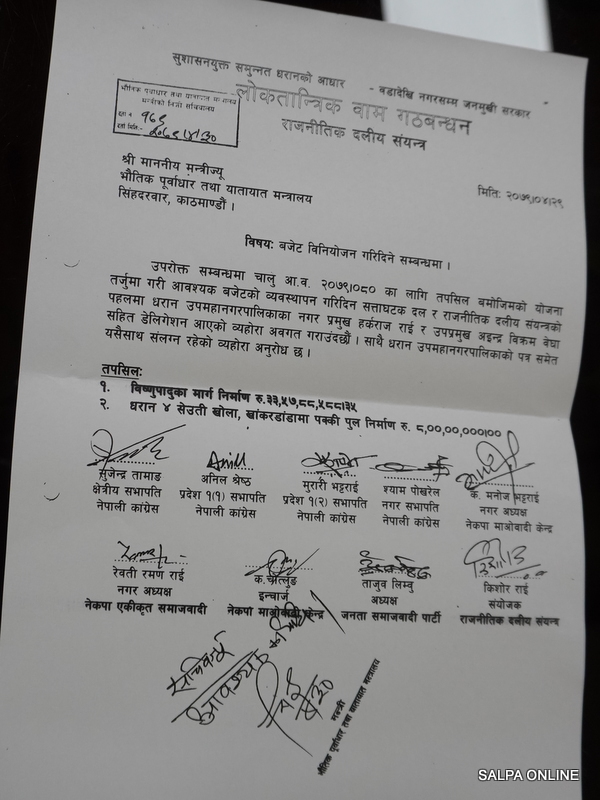 सुशासनयुक्त समुन्नत धरानको आधार - वडादेखि नगरसम्म जनमुखी सरकार
लोकतान्त्रिक वाम गठबन्धन
राजनीतिक दलीय संयन्त्र
भौतिक पूर्वाधार तथा यातायात मन्त्रालय
मन्त्रीको निजी सचिवालय
दर्ता नं १६९
दर्ता मिति:- २०७९।४।३०
श्री माननीय मन्त्रीज्यू
भौतिक पूर्वाधार तथा यातायात मन्त्रालय
सिंहदरवार, काठमाण्डौं ।
मिति: २०७९।०४।२९
विषय: बजेट विनियोजन गरिदिने सम्बन्धमा ।
उपरोक्त सम्बन्धमा चालु आ.व. २०७९।०८० का लागि तपसिल बमोजिमको योजना
तर्जुमा गरी आवश्यक बजेटको व्यवस्थापन गरिदिन सत्ताघटक दल र राजनीतिक दलीय संयन्त्रको
पहलमा धरान उपमहानगरपालिकाका नगर प्रमुख हर्कराज राई र उपप्रमुख अइन्द्र विक्रम बेघा
सहित डेलिगेशन आएको व्यहोरा अवगत गराउंदछौं । साथै धरान उपमहानगरपालिकाको पत्र समेत
यसैसाथ संलग्न रहेको व्यहोरा अनुरोध छ ।
तपसिल:
१. विष्णुपादुका मार्ग निर्माण रु.३३,५७,८८,५८८।३५
२. धरान ४ सेउती खोला, खांकरडांडामा पक्की पुल निर्माण रु. ८,००,००,०००।००
सुजेन्द्र तामाङ अनिल श्रेष्ठ मुरारी भट्टराई श्याम पोखरेल क. मनोज भट्टराई
क्षेत्रीय सभापति प्रदेश १(१) सभापति प्रदेश १(२) सभापति नगर सभापति नगर अध्यक्ष
नेपाली कांग्रेस नेपाली कांग्रेस नेपाली कांग्रेस नेपाली कांग्रेस नेकपा माओवादी केन्द्र
रेवती रमण राई क. चाम्लुङ ताजुव लिम्बु किशोर राई
नगर अध्यक्ष इन्चार्ज अध्यक्ष संयोजक
नेकपा एकीकृत समाजवादी नेकपा माओवादी केन्द्र जनता समाजवादी पार्टी राजनीतिक दलीय संयन्त्र
मन्त्री
भौतिक पूर्वाधार तथा यातायात मन्त्रालय
SALPA ONLINE